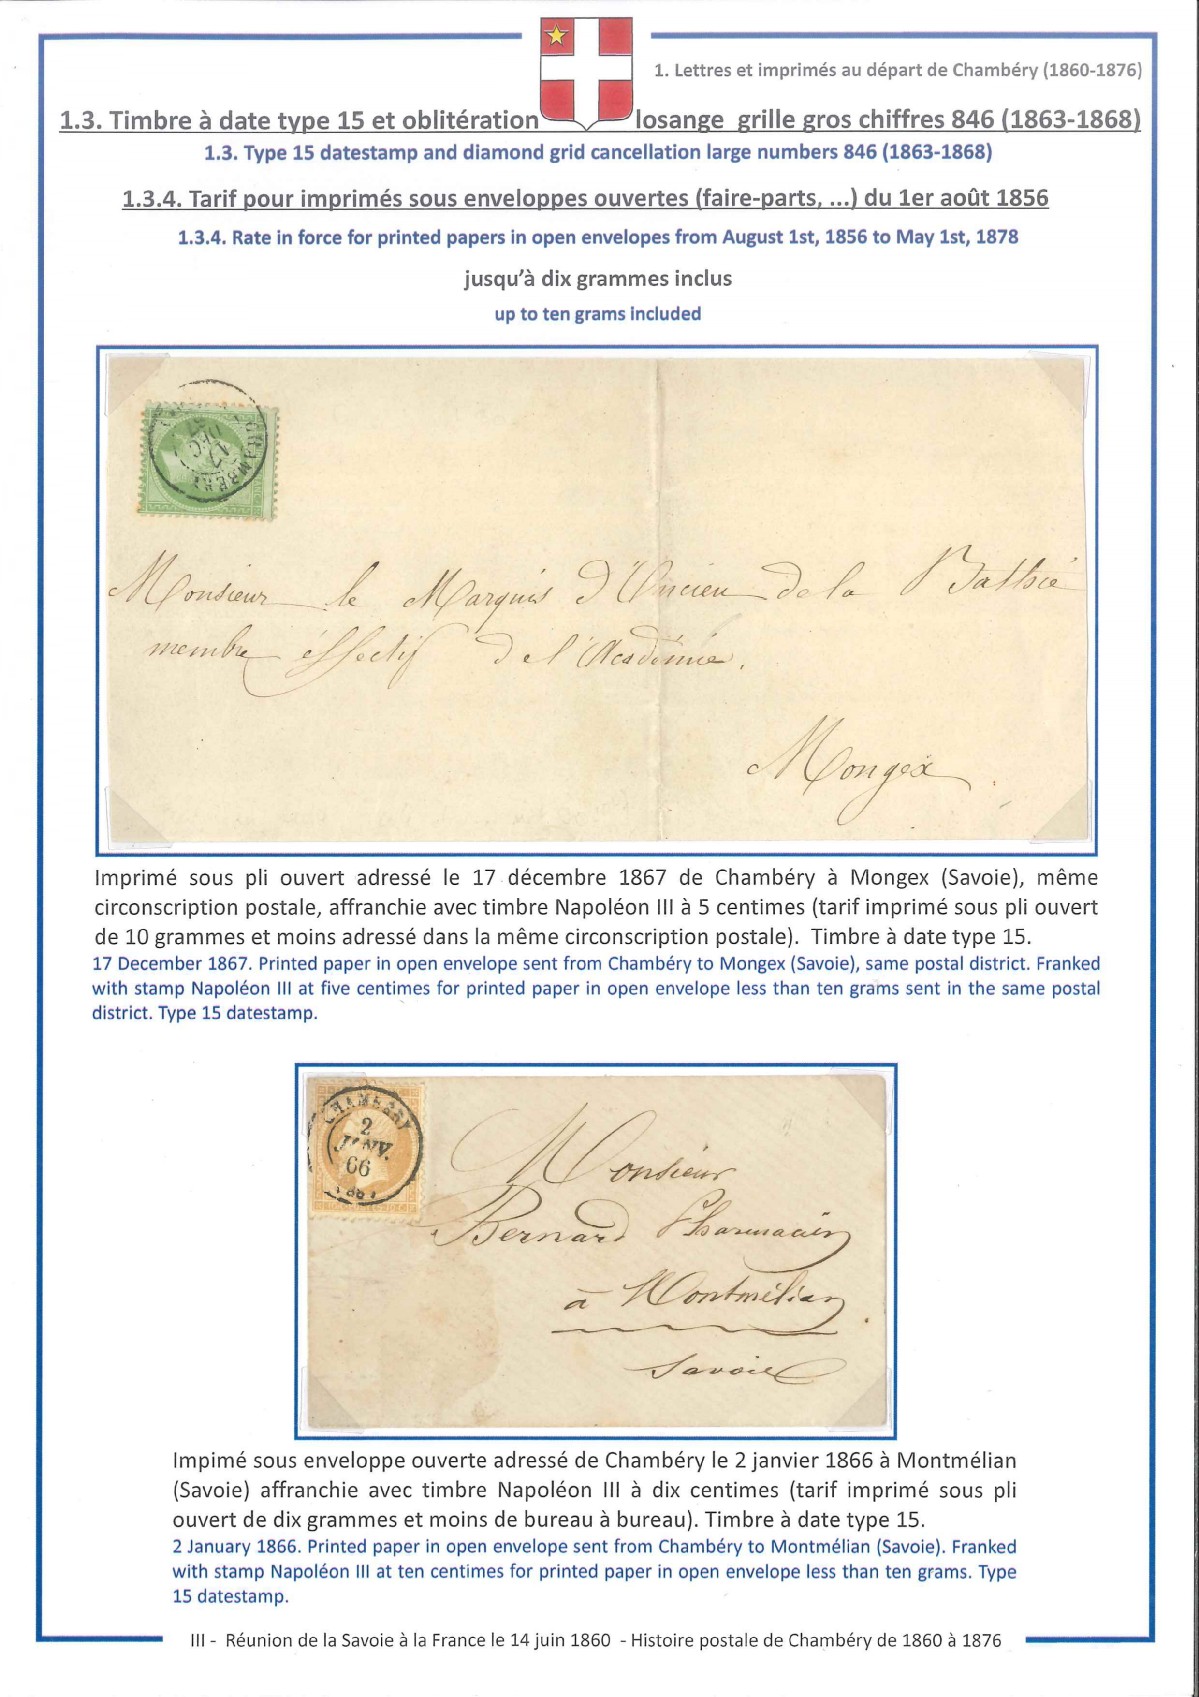 1. Lettres et imprimés au départ de Chambéry (1860-1876)
1.3. Timbre à date type 15 et oblitération losange grille gros chiffres 846 (1863-1868)
1.3. Type 15 datestamp and diamond grid cancellation large numbers 846 (1863-1868)
1.3.4. Tarif pour imprimés sous enveloppes ouvertes (faire-parts, ...) du 1er août 1856
1.3.4. Rate in force for printed papers in open envelopes from August 1st, 1856 to May 1st, 1878
jusqu'à dix grammes inclus
up to ten grams included
CHAMBERY
17
DEC
Monsieur le Marquis d'Oncieu de la Bathie
membre éffectif de l'Académie.
Mongex
Imprimé sous pli ouvert adressé le 17 décembre 1867 de Chambéry à Mongex (Savoie), même
circonscription postale, affranchie avec timbre Napoléon III à 5 centimes (tarif imprimé sous pli ouvert
de 10 grammes et moins adressé dans la même circonscription postale). Timbre à date type 15.
17 December 1867. Printed paper in open envelope sent from Chambéry to Mongex (Savoie), same postal district. Franked
with stamp Napoléon III at five centimes for printed paper in open envelope less than ten grams sent in the same postal
district. Type 15 datestamp.
CHAMBERY
2
JANV.
66
Monsieur
Bernard Pharmacien
à Montmélian
Savoie
Impimé sous enveloppe ouverte adressé de Chambéry le 2 janvier 1866 à Montmélian
(Savoie) affranchie avec timbre Napoléon III à dix centimes (tarif imprimé sous pli
ouvert de dix grammes et moins de bureau à bureau). Timbre à date type 15.
2 January 1866. Printed paper in open envelope sent from Chambéry to Montmélian (Savoie). Franked
with stamp Napoléon III at ten centimes for printed paper in open envelope less than ten grams. Type
15 datestamp.
III - Réunion de la Savoie à la France le 14 juin 1860 - Histoire postale de Chambéry de 1860 à 1876